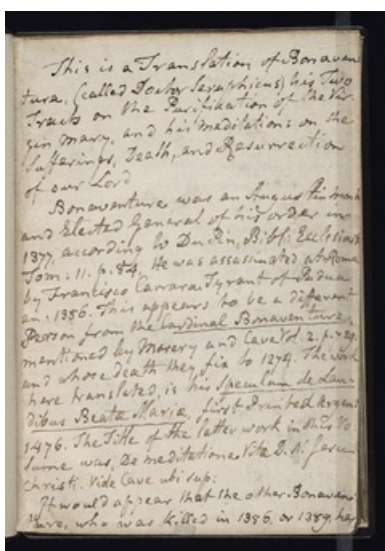 This is a Translation of Bonaven
ture, (called Doctor Seraphicus) his Two
Tracts on the Purification of the Vir-
gin Mary, and his Meditations on the
Sufferings, Death, and Resurrection
of our Lord
Bonaventure was an Augustin monk
and Elected General of his order in
1377, according to Du Pin, Bibl: Ecclesiast
Tom: 11. p. 84. He was assassinated at Rome
by Francisco Carrara Tyrant of Padua
an: 1386. This appears to be a different
Person from the Cardinal Bonaventure,
mentioned by Morery and Cave Vol. 2. p. 729.
and whose death they fix to 1274. The work
here translated, is his Speculum de Lau-
dibus Beata Maria, first Printed Argent
1476. The Title of the latter work in this Vo-
lume was, De meditatione Vita D. N. Jesu
Christi. Vide Cave ubi sup:
It would appear that the other Bonaven-
ture, who was killed in 1386. or 1389, has